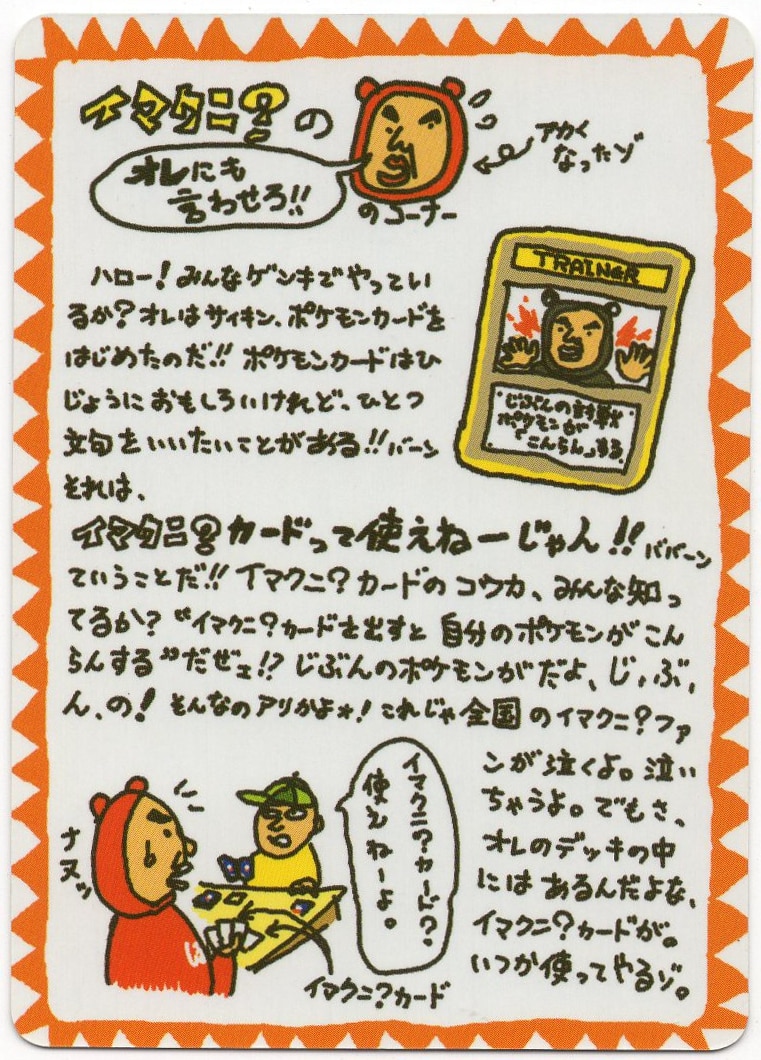 イマクニ?の
オレにも
言わせろ!!
のコーナー
アカく
なったゾ
ハロー!みんなゲンキでやってい
るか?オレはサイキン、ポケモンカードを
はじめたのだ!!ポケモンカードはひ
じょうにおもしろいけれど、ひとつ
文句をいいたいことがある!!バーン
それは、
TRAINER
・じぶんの対戦
ポケモンが
「こんらん」する。
イマクニ?カードって使えねーじゃん!!ババーン
ていうことだ!!イマクニ?カードのコウカ、みんな知っ
てるか?“イマクニ?カードを出すと自分のポケモンがこん
らんする”だぜェ!?じぶんのポケモンがだよ、じ、ぶ、
ん、の!そんなのアリかよ★!これじゃ全国のイマクニ?ファ
ンが泣くよ。泣い
ちゃうよ。でもさ、
オレのデッキの中
にはあるんだよな、
イマクニ?カードが。
いつか使ってやるゾ。
ナヌッ
イマクニ?カード?
使えねーよ。
イマクニ?カード